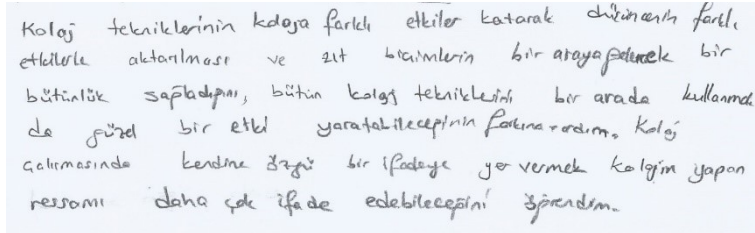 Kolaj tekniklerinin kolaja farklı etkiler katarak düşüncenin farklı
etkilerle aktarılması ve zıt biçimlerin bir araya gelerek bir
bütünlük sağladığını, bütün kolaj tekniklerini bir arada kullanmak
da güzel bir etki yaratabileceğinin farkına vardım. Kolaj
çalışmasında kendine özgü bir ifadeye yer vermek kolajın yapan
ressamı daha çok ifade edebileceğini öğrendim.